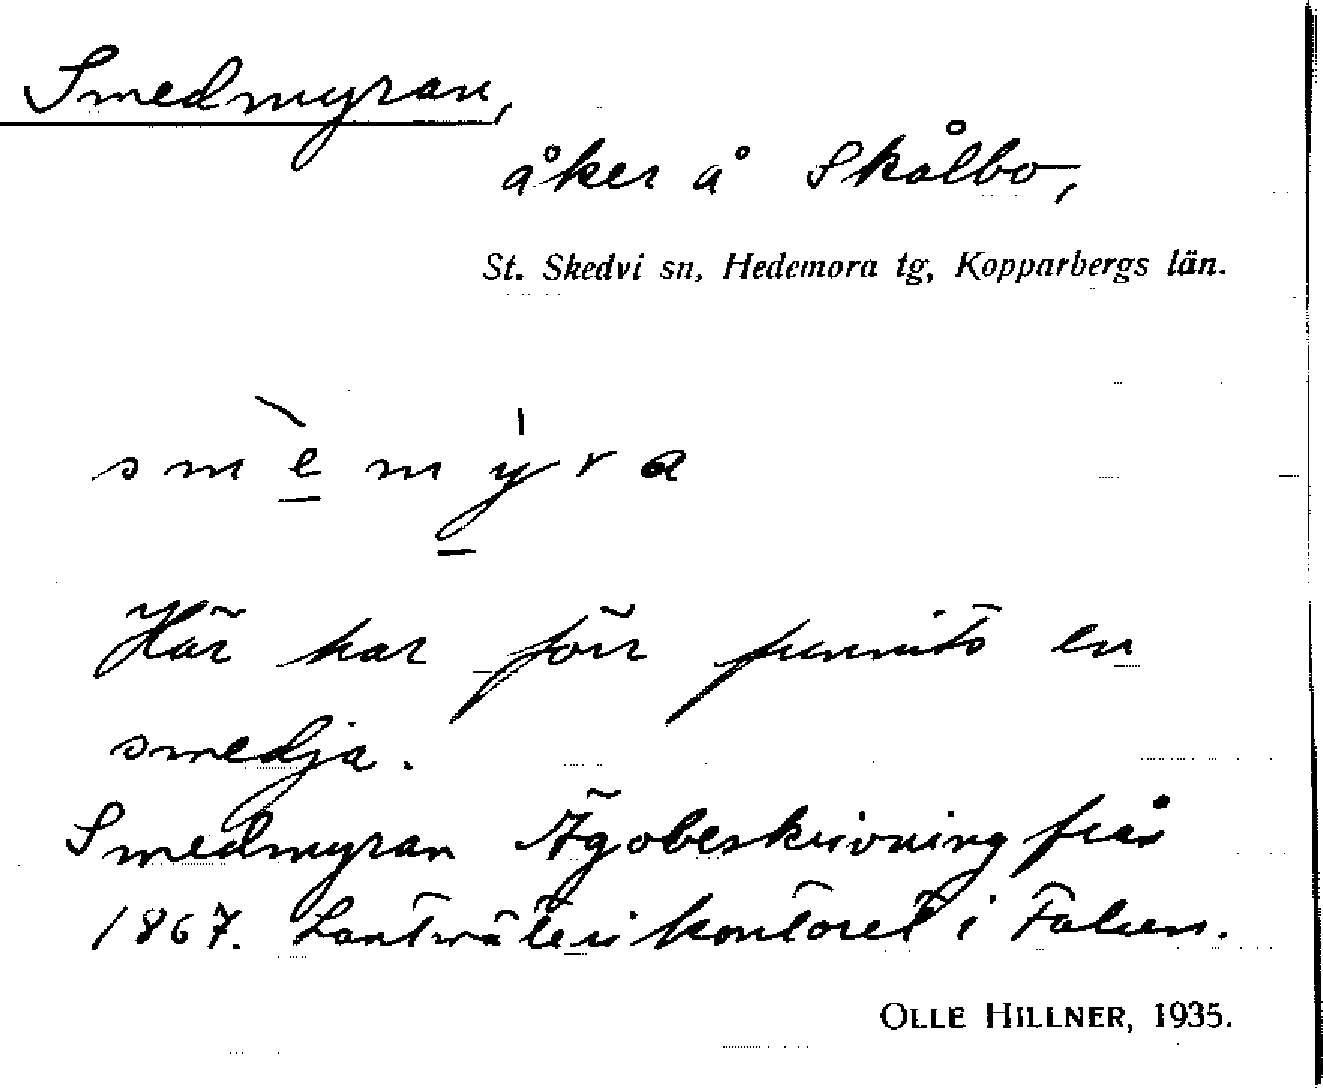 Smedmyran,
åker å Skålbo,
St. Skedvi sn, Hedemora tg, Kopparbergs län.
smèmýra
Här har förr funnits en
smedja.
Smedmyran Ägobeskrivning från
1867. Lantmäterikontoret i Falun.
OLLE HILLNER, 1935.